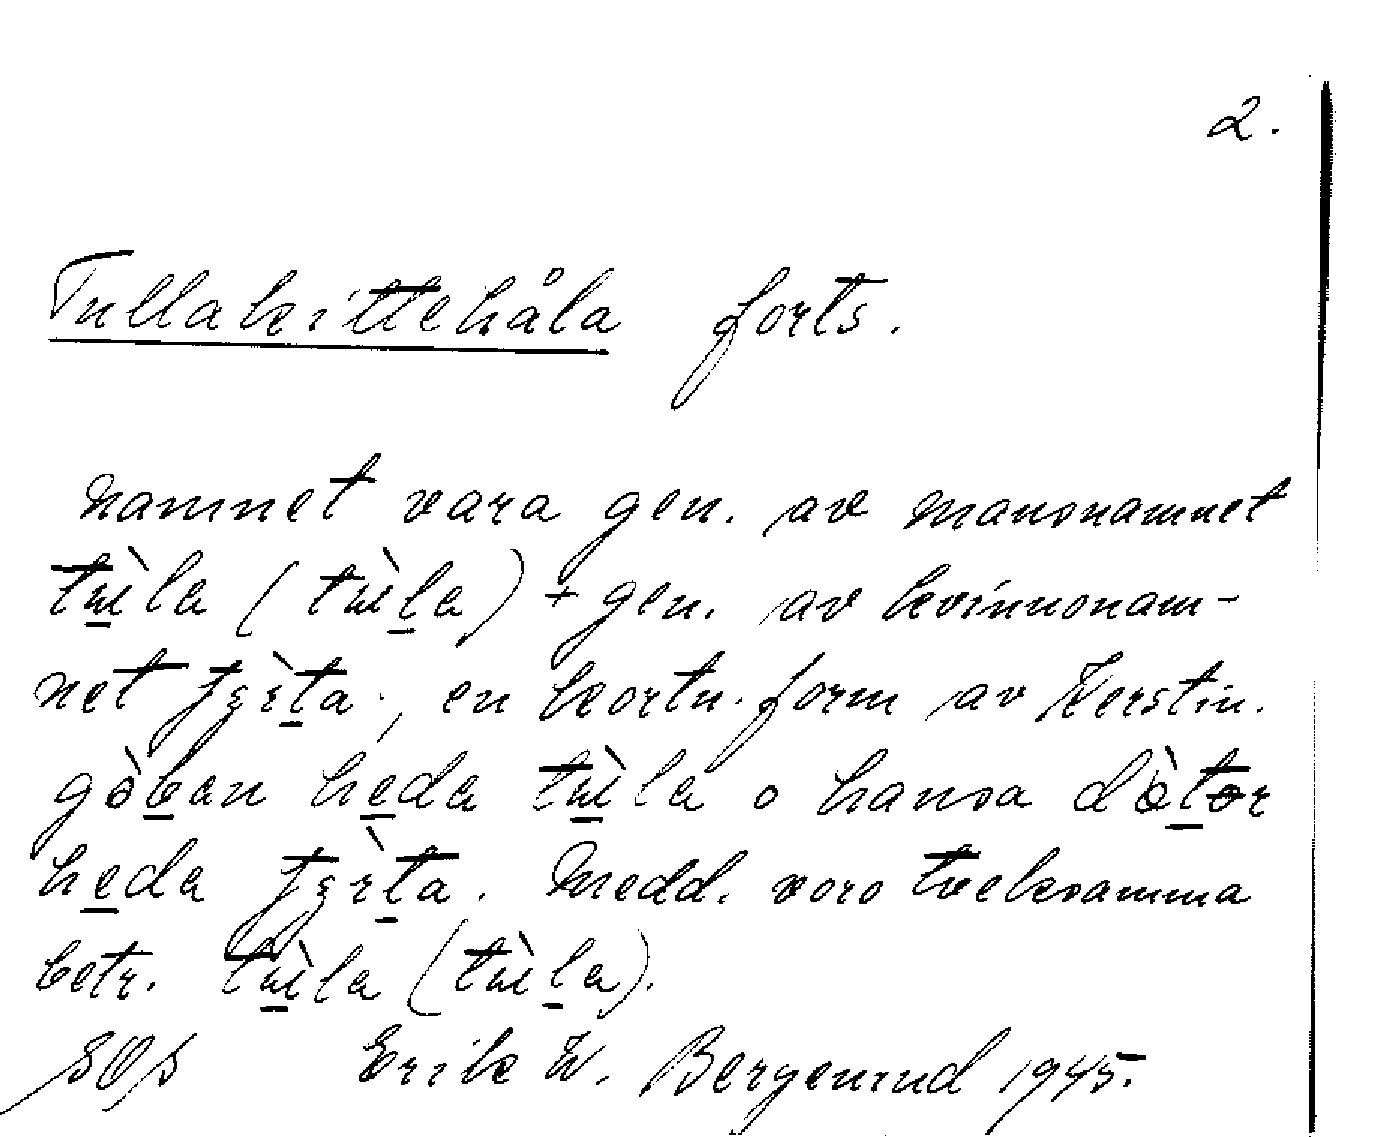 2.
Tullakittehåla forts.
namnet vara gen. av mansnamnet
tɯ̀la (tɯ̀la) + gen. av kvinnonam-
net en kortn. form av Kerstin.
gòban heda tɯ̀la o hansa dòtor
heda Medd. voro tveksamma
betr. tɯ̀la (tɯ̀la).
Erik W. Bergelind 1945.